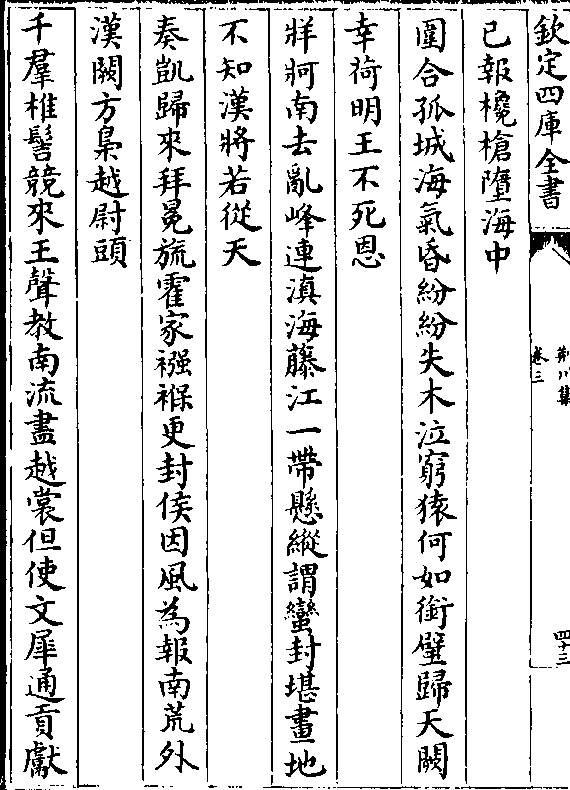 欽定四庫全書
荆川集
卷三
四十三
已報欃槍墮海中
圍合孤城海氣昏紛紛失木泣窮猿何如銜璧歸天闕
幸荷明王不死恩
牂牁南去亂峰連滇海藤江一帶懸縱謂蠻封堪畫地
不知漢將若從天
奏凱歸來拜冕旒霍家襁褓更封侯因風為報南荒外
漢闕方梟越尉頭
千羣椎髻競來王聲教南流盡越裳但使文犀通貢獻